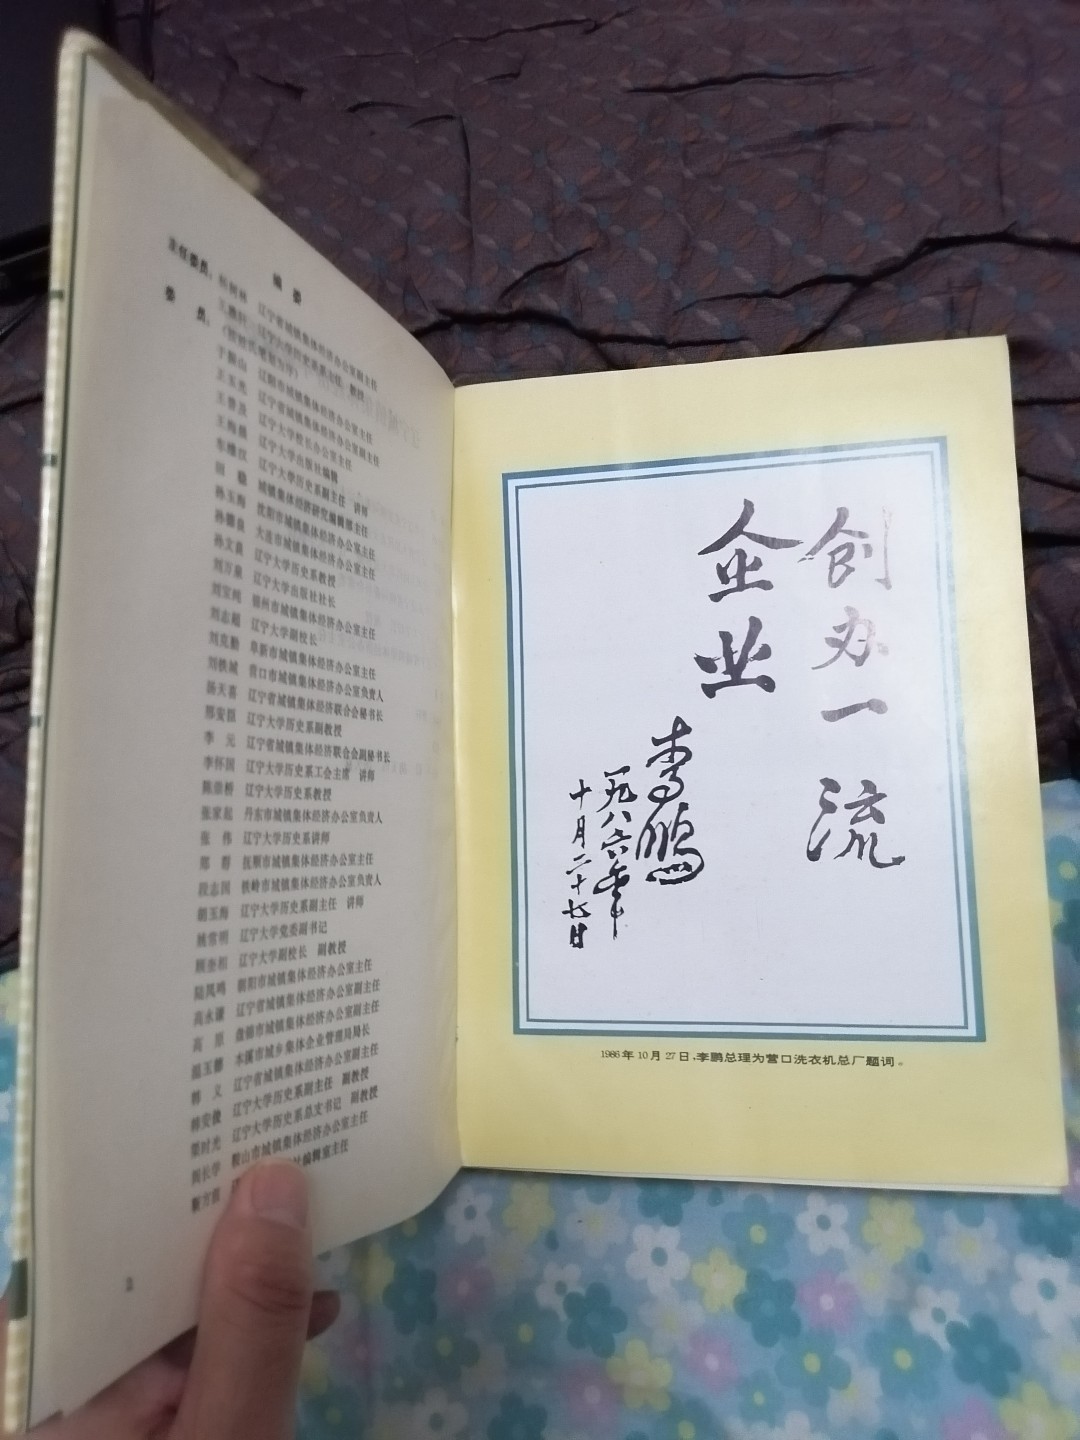 编 委
主任委员：
委 员：
辽宁省城镇集体经济办公室副主任
辽宁大学历史系系主任、教授
（按姓氏笔划为序）
于振山 辽阳市城镇集体经济办公室主任
王玉亮 辽宁省城镇集体经济办公室副主任
王普及 辽宁大学校长办公室主任
王梅晨 辽宁大学出版社编辑
辽宁大学历史系副主任 讲师
田 城镇集体经济研究编辑部主任
孙玉梅 沈阳市城镇集体经济办公室主任
大连市城镇集体经济办公室主任
孙文良 辽宁大学历史系教授
刘万泉 辽宁大学出版社社长
刘宝纯 锦州市城镇集体经济办公室主任
刘志超 辽宁大学副校长
刘克勤 阜新市城镇集体经济办公室主任
刘铁城 营口市城镇集体经济办公室负责人
杨天喜 辽宁省城镇集体经济联合会秘书长
邢安臣 辽宁大学历史系副教授
李 元 辽宁省城镇集体经济联合会副秘书长
李怀国 辽宁大学历史系工会主席 讲师
陈崇桥 辽宁大学历史系教授
张家起 丹东市城镇集体经济办公室负责人
张 伟 辽宁大学历史系讲师
郑 群 抚顺市城镇集体经济办公室主任
段志国 铁岭市城镇集体经济办公室负责人
胡玉海 辽宁大学历史系副主任 讲师
姚常明 辽宁大学党委副书记
顾奎相 辽宁大学副校长 副教授
陆凤鸣 朝阳市城镇集体经济办公室主任
高永谦 辽宁省城镇集体经济办公室副主任
高 原 盘锦市城镇集体经济办公室副主任
温玉 本溪市城乡集体企业管理局局长
韩 义 辽宁省城镇集体经济办公室副主任
韩安俊 辽宁大学历史系副主任 副教授
栗时光 辽宁大学历史系总支书记 副教授
阎长学 鞍山市城镇集体经济办公室主任
靳方直 编辑室主任
2
创办一流
企业
李鹏
一九八六年
十月二十七日
1986年10月27日，李鹏总理为营口洗衣机总厂题词。